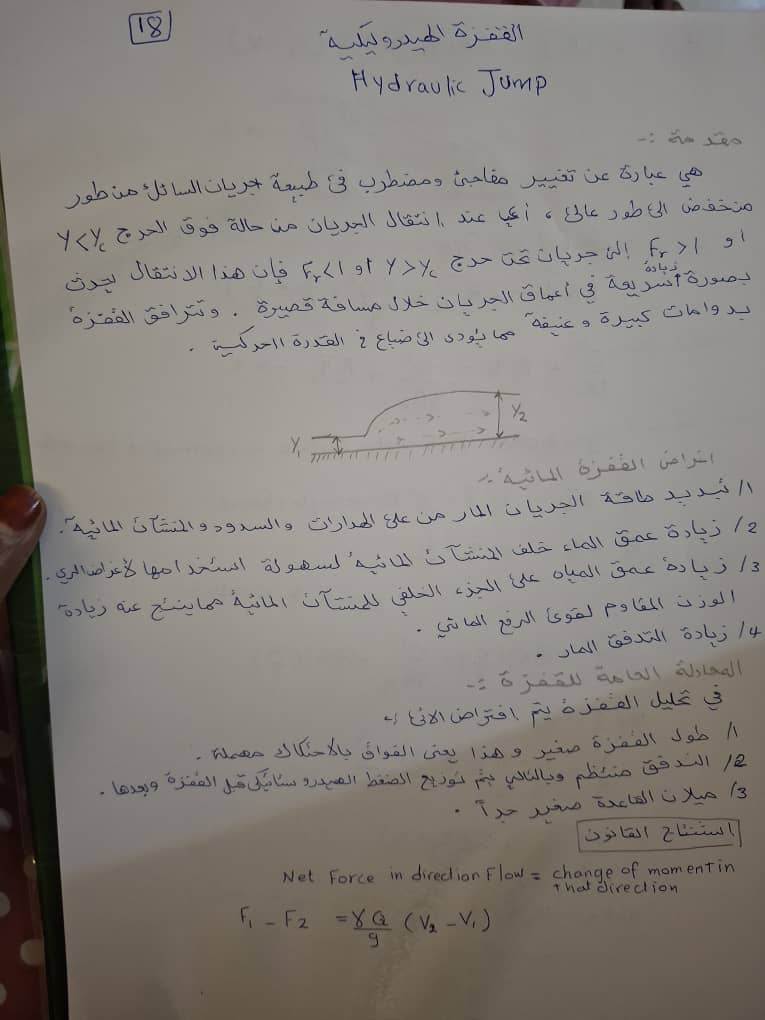 18
القفزة الهيدروليكية
Hydraulic Jump
مقدمة :-
هي عبارة عن تغيير مفاجئ ومضطرب في طبيعة جريان السائل من طور
منخفض الى طور عالي ، أي عند انتقال الجريان من حالة فوق الحرج Y<Yc
او Fr >1 إلى جريان تحت حرج Y>Yc او Fr<1 فإن هذا الانتقال يحدث
بصورة سريعة زيادة في أعماق الجريان خلال مسافة قصيرة . وتترافق القفزة
بدوامات كبيرة وعنيفة مما يؤدى الى ضياع في القدرة الحركية .
Y1
Y2
اغراض القفزة المائية :-
1/ تبديد طاقة الجريان المار من على الهدارات والسدود والمنشآت المائية .
2/ زيادة عمق الماء خلف المنشآت المائية لسهولة استخدامها لأغراض الري .
3/ زيادة عمق المياه على الجزء الخلفي للمنشآت المائية مما ينتج عنه زيادة
الوزن المقاوم لقوى الرفع المائي .
4/ زيادة التدفق المار .
المعادلة العامة للقفزة :-
في تحليل القفزة يتم افتراض الاتي :-
1/ طول القفزة صغير وهذا يعنى الفواقد بالاحتكاك مهملة .
2/ التدفق منتظم وبالتالي يتم توزيع الضغط الهيدروستاتيكي قبل القفزة وبعدها .
3/ ميلان القاعدة صغير جداً .
استنتاج القانون
Net Force in direction Flow = change of moment in
that direction
F1 - F2 = γQ/g (V2 - V1)